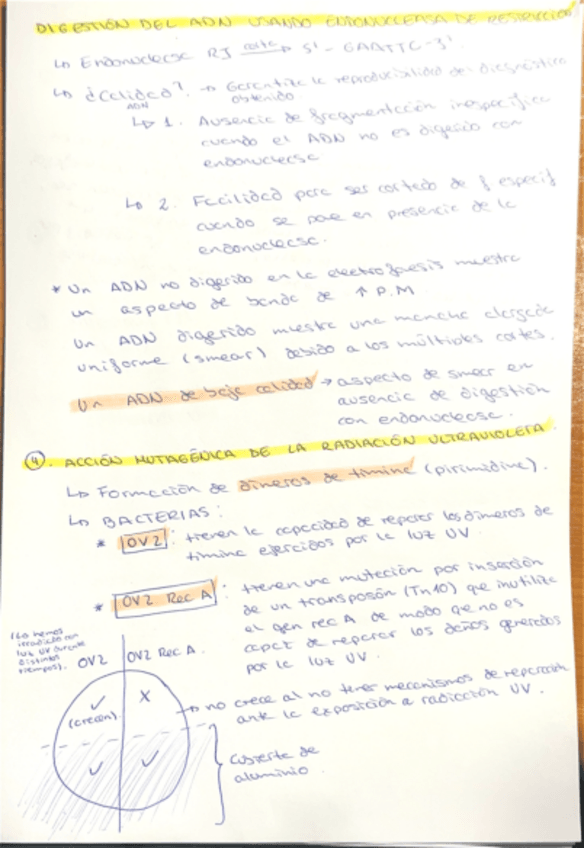 DIGESTIÓN DEL ADN USANDO ENDONUCLEASA DE RESTRICCIÓN
↳ Endonucleasa RI corta → 5' - GAATTC - 3'
↳ ¿Calidad? → Garantiza la reproducibilidad del diagnóstico
ADN
obtenido.
↳ 1. Ausencia de fragmentación inespecífica
cuando el ADN no es digerido con
endonucleasa
↳ 2. Facilidad para ser cortado de f especif
cuando se pone en presencia de la
endonucleasa.
* Un ADN no digerido en la electroforesis muestra
un aspecto de banda de ↑ P.M
Un ADN digerido muestra una mancha alargada
uniforme (smear) debido a los múltiples cortes.
Un ADN de baja calidad → aspecto de smear en
ausencia de digestión
con endonucleasa.
④. ACCIÓN MUTAGÉNICA DE LA RADIACIÓN ULTRAVIOLETA.
↳ Formación de dímeros de timina (pirimidina).
↳ BACTERIAS:
* OV2 : tienen la capacidad de reparar los dímeros de
timina ejercidos por la luz UV.
* OV2 Rec A : tienen una mutación por inserción
de un transposón (Tn10) que inutiliza
el gen rec A de modo que no es
capaz de reparar los daños generados
por la luz UV.
(Lo hemos
irradiado con
luz UV durante
distintos
tiempos).
OV2 | OV2 Rec A.
✓ (crecen) X → no crece al no tener mecanismos de reparación
ante la exposición a radiación UV.
✓ ✓ } Cubierta de
aluminio.